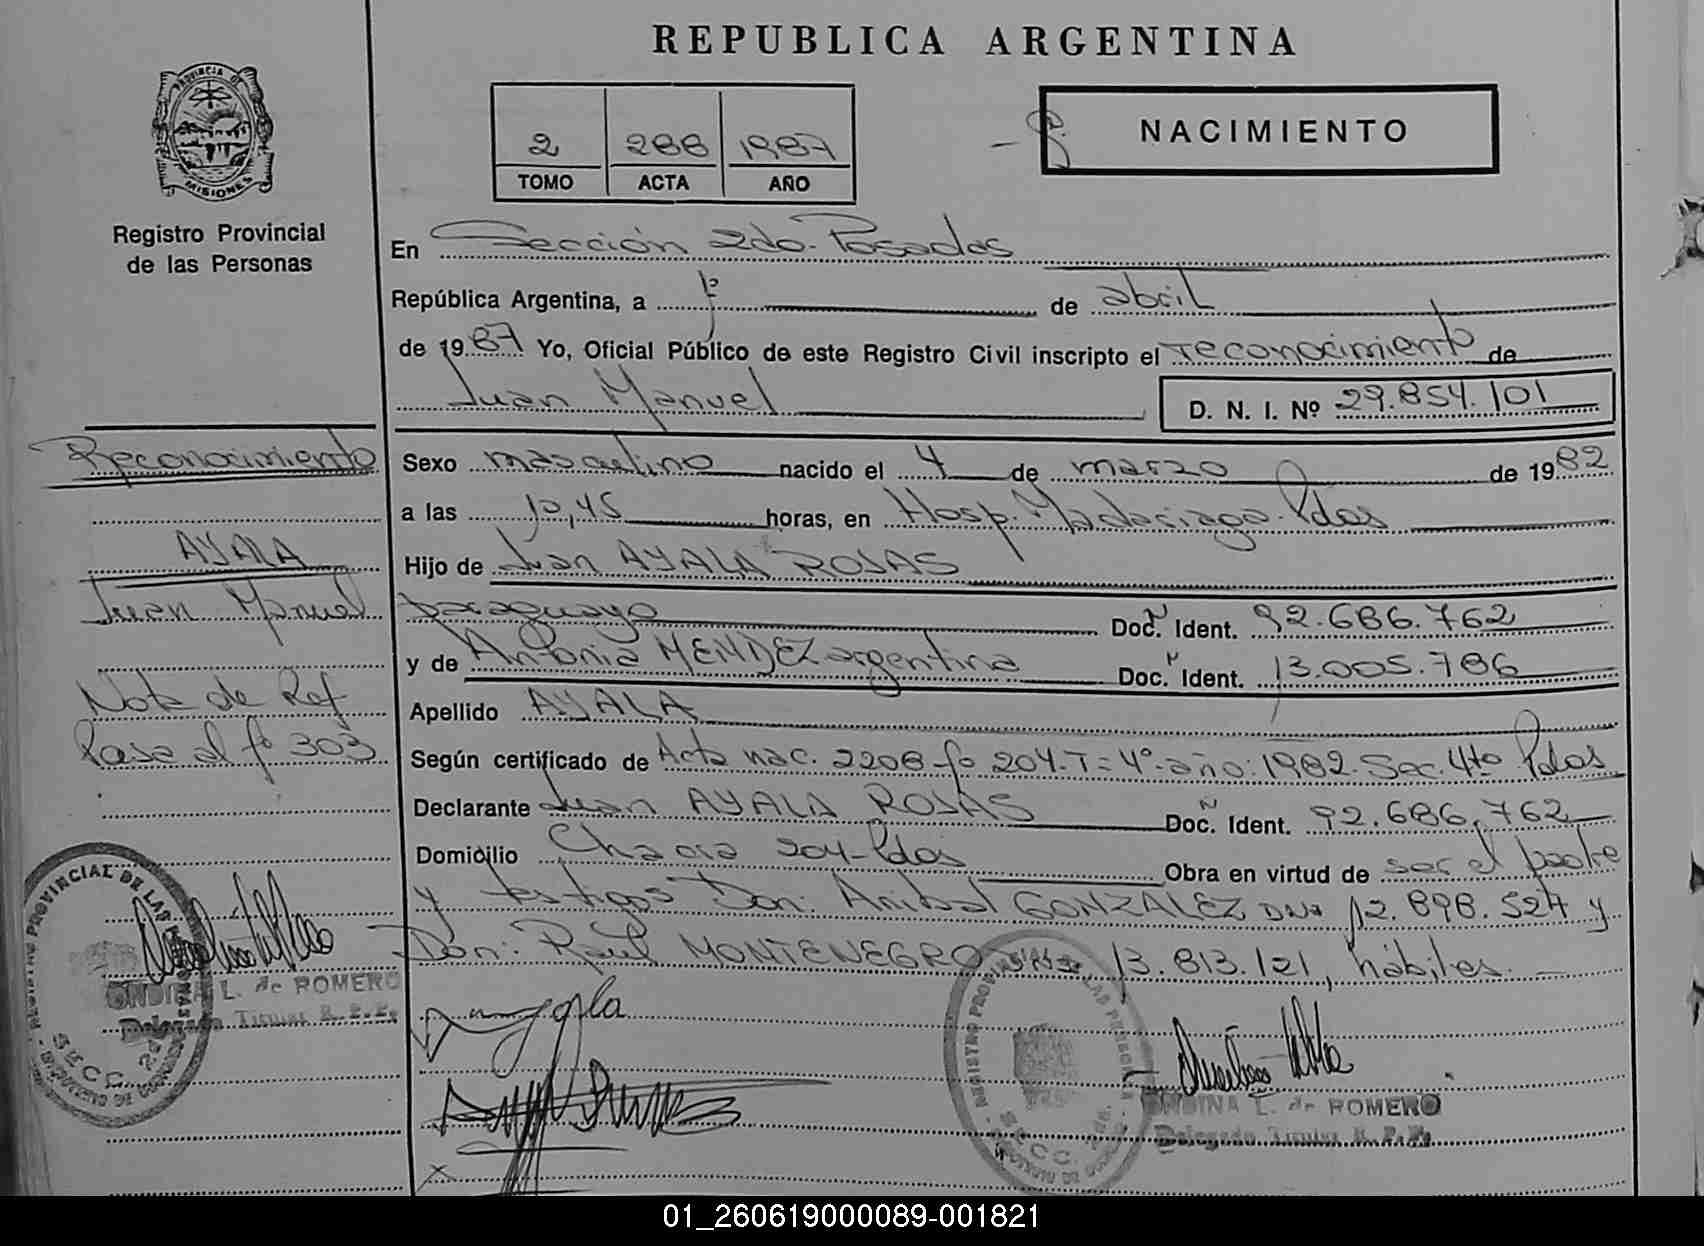 REPUBLICA ARGENTINA
PROVINCIA DE
MISIONES
Registro Provincial
de las Personas
2 288 1987
TOMO ACTA AÑO
NACIMIENTO
En Sección 2do. Posadas
República Argentina, a de abril
de 1987 Yo, Oficial Público de este Registro Civil inscripto el reconocimiento de
Juan Manuel
D. N. I. Nº 29.854.101
Reconocimiento
AYALA
Juan Manuel
Nota de Ref
Pase al fº 303
Sexo masculino nacido el 4 de marzo de 1982
a las 10,45 horas, en Hosp. Madariaga. Pdas
Hijo de Juan AYALA ROJAS
paraguayo Doc. Ident. 92.686.762
y de Antonia MENDEZ argentina Doc. Ident. 13.005.786
Apellido AYALA
Según certificado de Acta nac. 2208 fº 204. T= 4º. año: 1982. Sec. 4to Pdas
Declarante Juan AYALA ROJAS Doc. Ident. 92.686.762
Domicilio Chacra 204-Pdas Obra en virtud de ser el padre
y testigos Don: Anibal GONZALEZ DNI 12.898.524 y
Don: Raúl MONTENEGRO 13.813.121, hábiles.
REGISTRO PROVINCIAL DE LAS PERSONAS
SECC. 2da.
ONDINA L. de ROMERO
Delegada Titular R.P.P.
REGISTRO PROVINCIAL DE LAS PERSONAS
SECC. 2da.
ONDINA L. de ROMERO
Delegada Titular R.P.P.
01_260619000089-001821